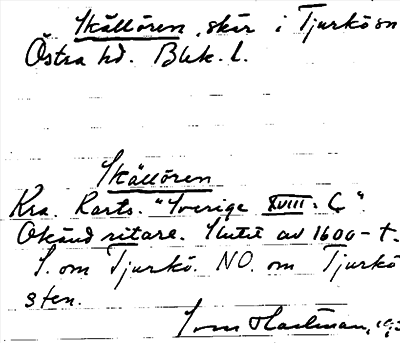 Skällören, skär i Tjurkö sn
Östra hd. Blek. l.
Skällören
Kra. Karts. "Sverige XVIII. C".
Okänd ritare. Slutet av 1600-t.
S. om Tjurkö. NO. om Tjurkö
sten.
Hartman,